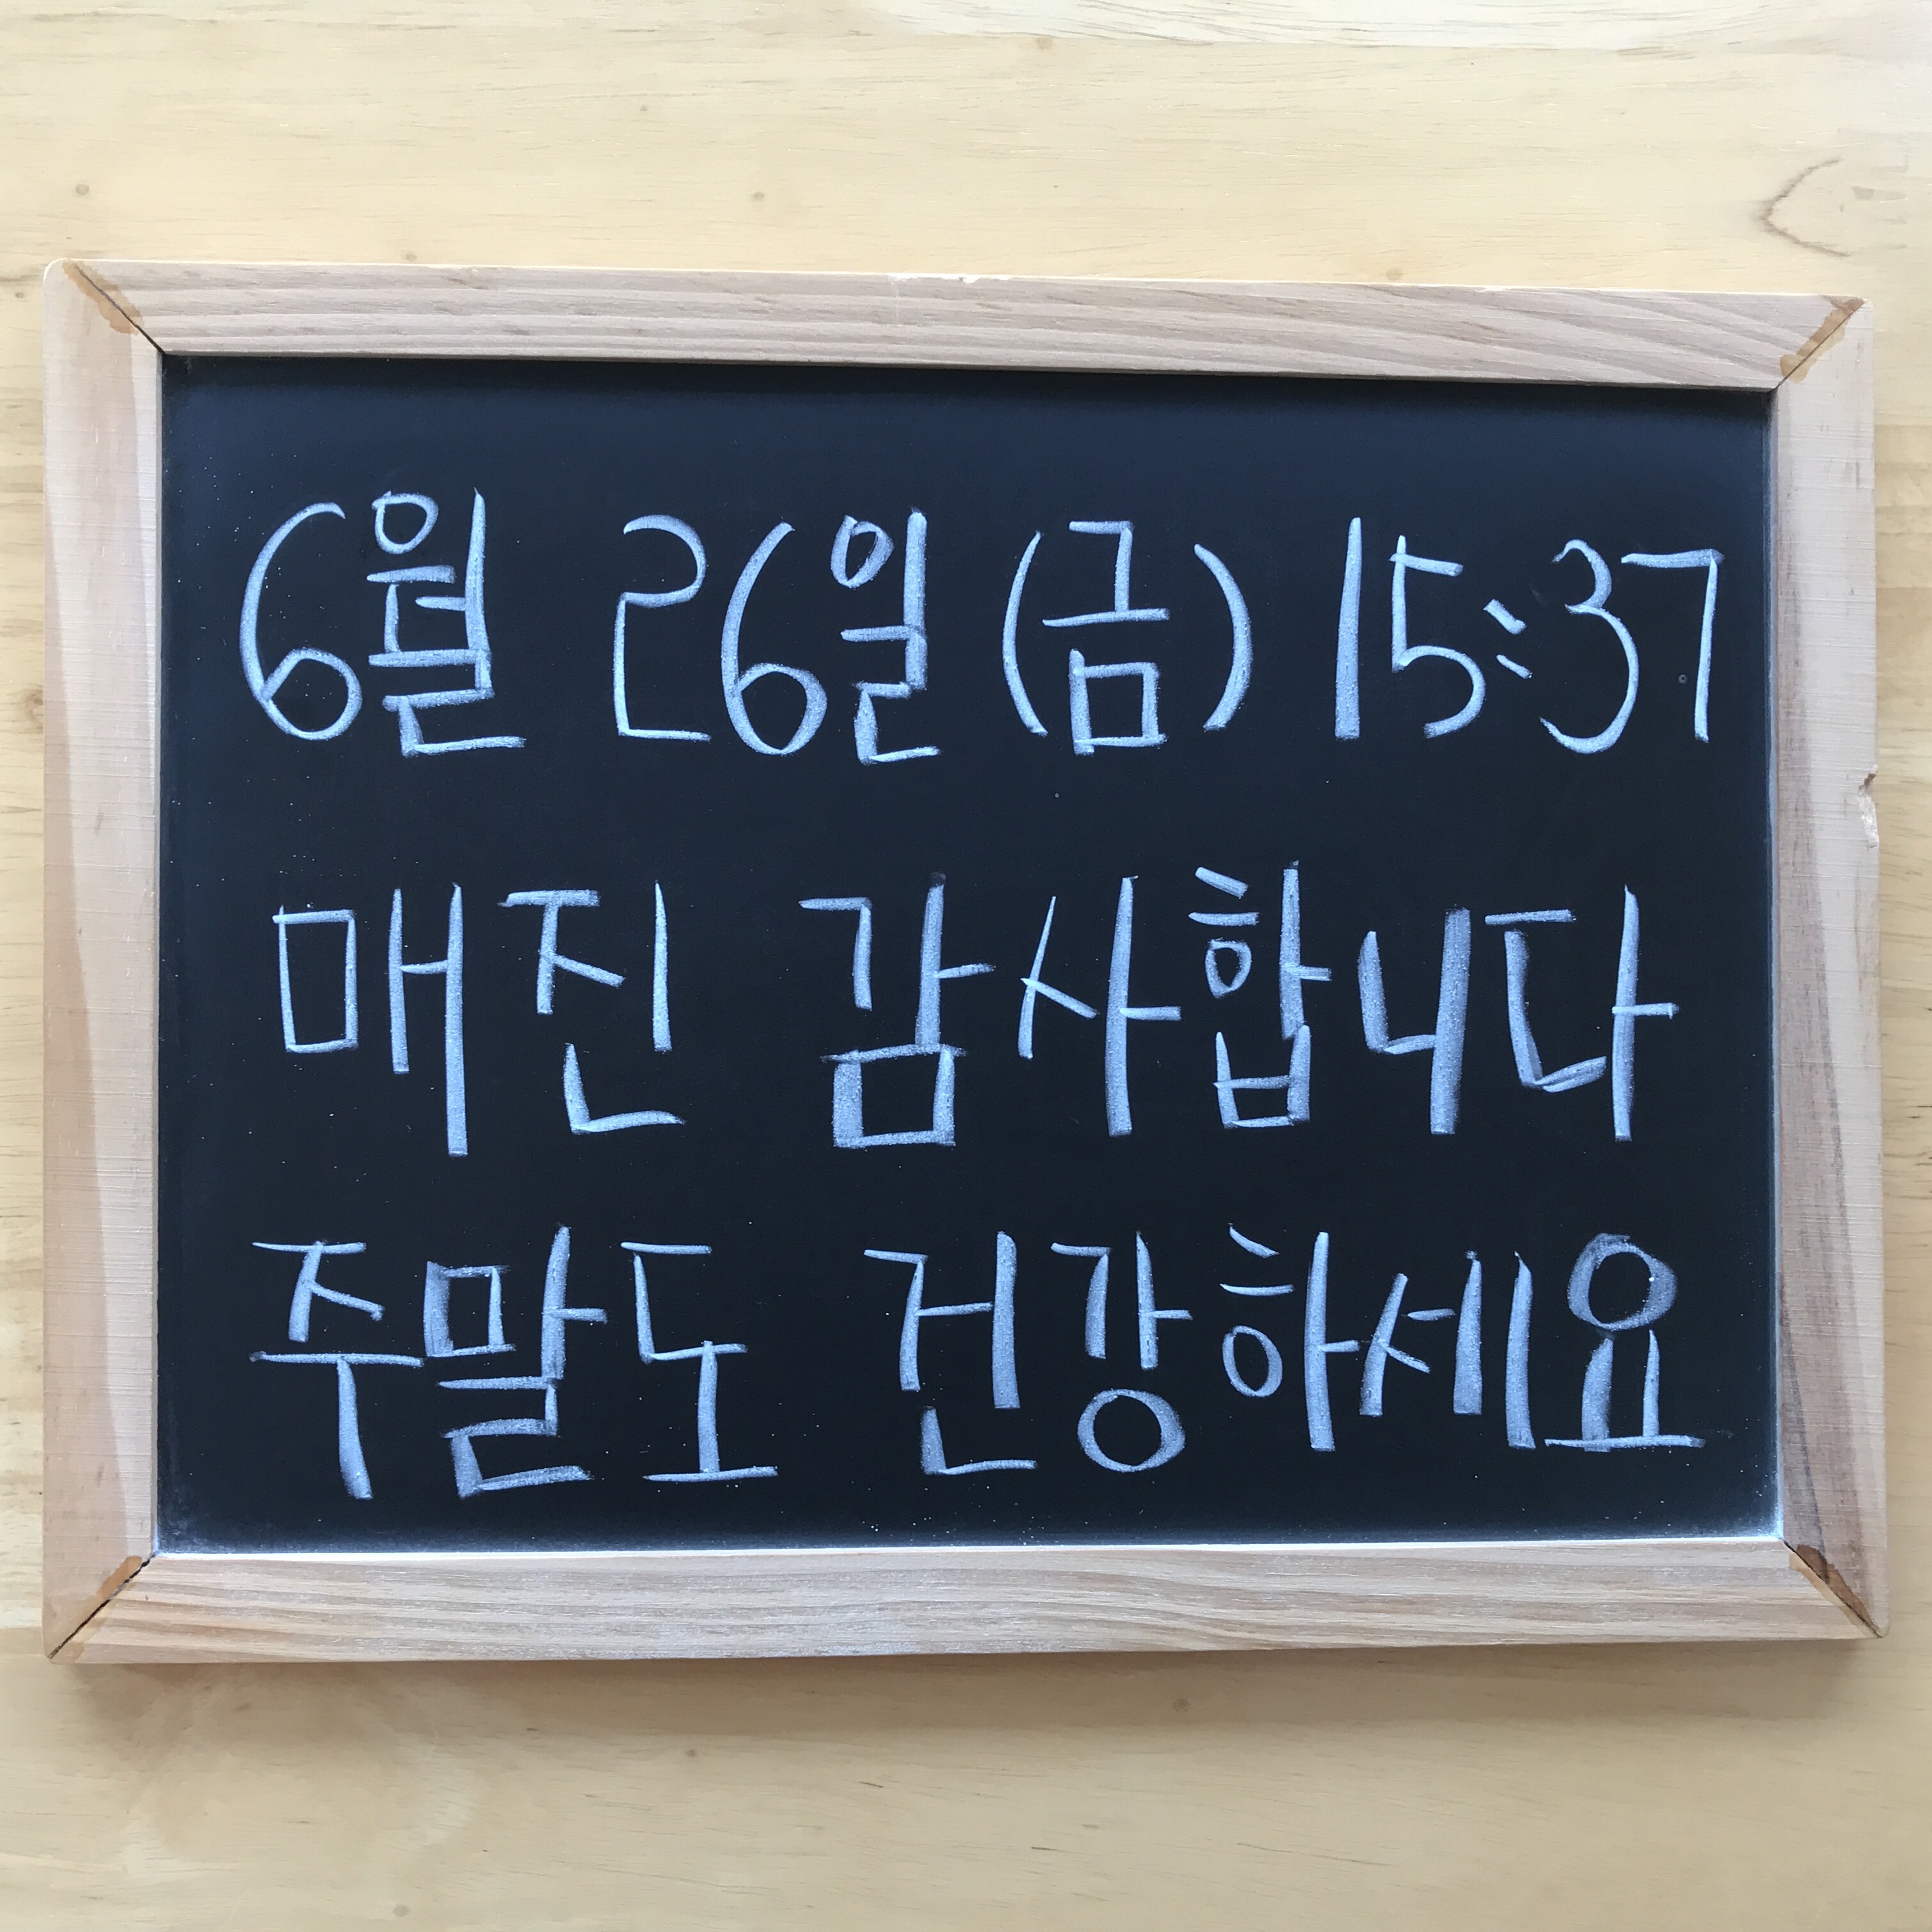 6월 26일(금) 15:37
매진 감사합니다
주말도 건강하세요